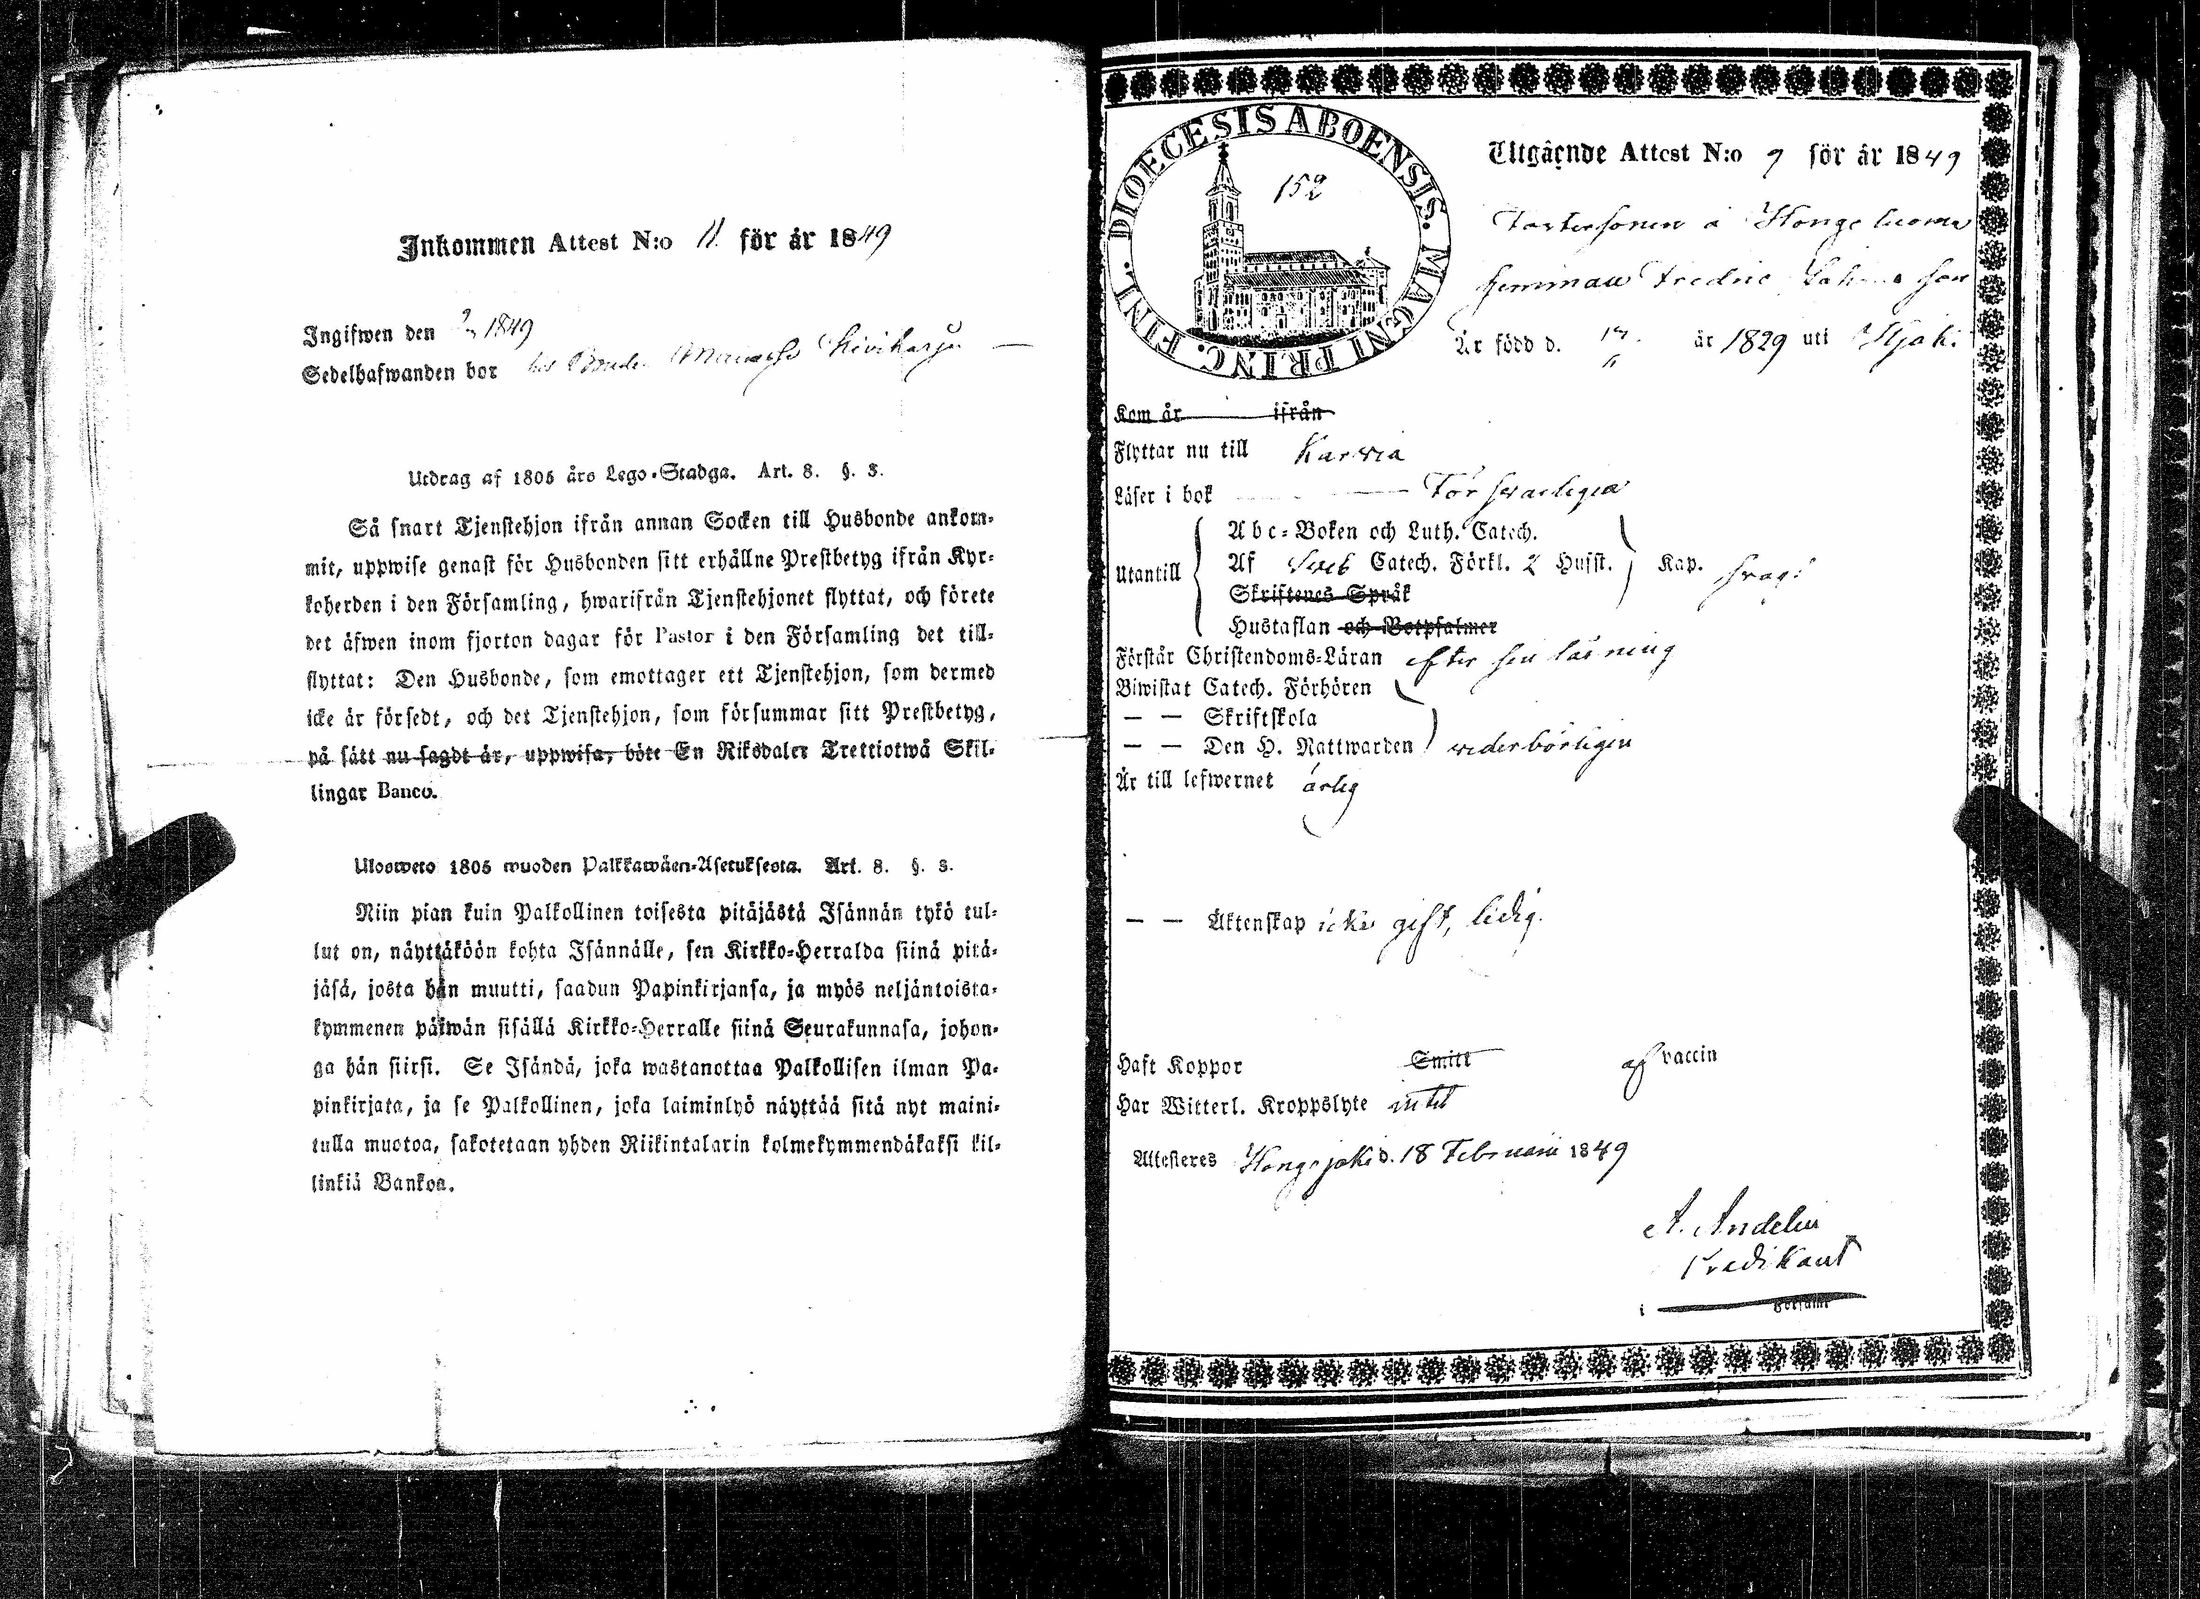 Inkommen Attest N:o 11. för år 1849
Ingifwen den 1849
Sedelhafwanden bor hos Bonden Kiviharju
Utdrag af 1805 års Lego-Stadga. Art. 8. §. 3.
Så snart Tjenstehjon ifrån annan Socken till Husbonde ankom-
mit, uppwise genast för Husbonden sitt erhållne Prestbetyg ifrån Kyr-
koherden i den Församling, hwarifrån Tjenstehjonet flyttat, och förete
det äfwen inom fjorton dagar för Pastor i den Församling det till-
flyttat: Den Husbonde, som emottager ett Tjenstehjon, som dermed
icke är försedt, och det Tjenstehjon, som försummar sitt Prestbetyg,
på sätt nu sagdt är, uppwisa, böte En Riksdaler Trettiotwå Skil-
lingar Banco.
Ulosweto 1805 wuoden Palkkawäen-Asetuksesta. Art. 8. §. 3.
Niin pian kuin Palkollinen toisesta pitäjästä Isännän tykö tul-
lut on, näyttäköön kohta Isännälle, sen Kirkko-Herralda siinä pitä-
jäsä, josta hän muutti, saadun Papinkirjansa, ja myös neljäntoista-
kymmenen päiwän sisällä Kirkko-Herralle siinä Seurakunnasa, johon-
ga hän siirsi. Se Isändä, joka wastanottaa Palkollisen ilman Pa-
pinkirjata, ja se Palkollinen, joka laiminlyö näyttää sitä nyt maini-
tulla muotoa, sakotetaan yhden Riikintalarin kolmekymmendäkaksi kil-
linkiä Bankoa.
DIOECESIS ABOENSIS. MAGNI PRINC. FINL.
152
Utgående Attest N:o 9 för år 1849
å Honge luoma
hemman Fredric son
Är född d. 17 är 1829 uti
Kom år ifrån
Flyttar nu till Karvia
Läser i bok Försvarligen
Abc-Boken och Luth. Catech.
Utantill Af Sveb Catech. Förkl. 2 Husst. Kap. svagt
Skriftenes Språk
Hustaflan och Botpsalmer
Förstår Christendoms-Läran efter sin läsning
Biwistat Catech. Förhören
— — Skriftskola
— — Den H. Nattwarden vederbörligen
Är till lefwernet ärlig
— — Äktenskap icke gift, ledig.
Haft Koppor Smitt af vaccin
Har Witterl. Kroppslyte intet
Attesteres Hongojoki d. 18 Februarii 1849
A. Andelin
Predikant
i Församl